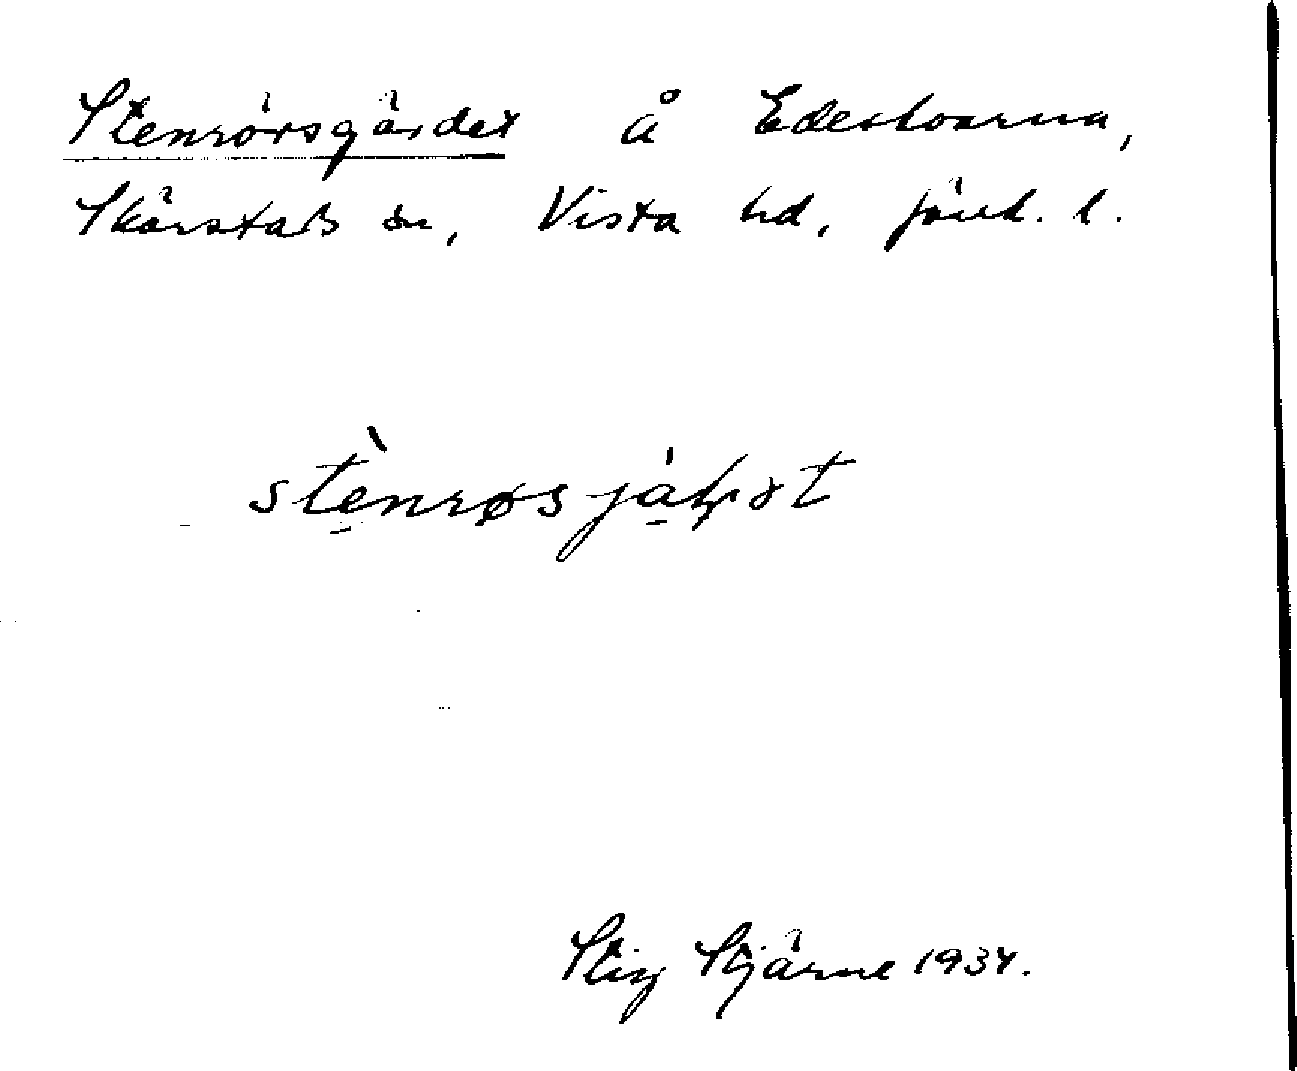 Stenrörsgärdet å Edeskvarna,
Skärstads sn, Vista hd, Jönk. l.
Stig Stjärne 1934.